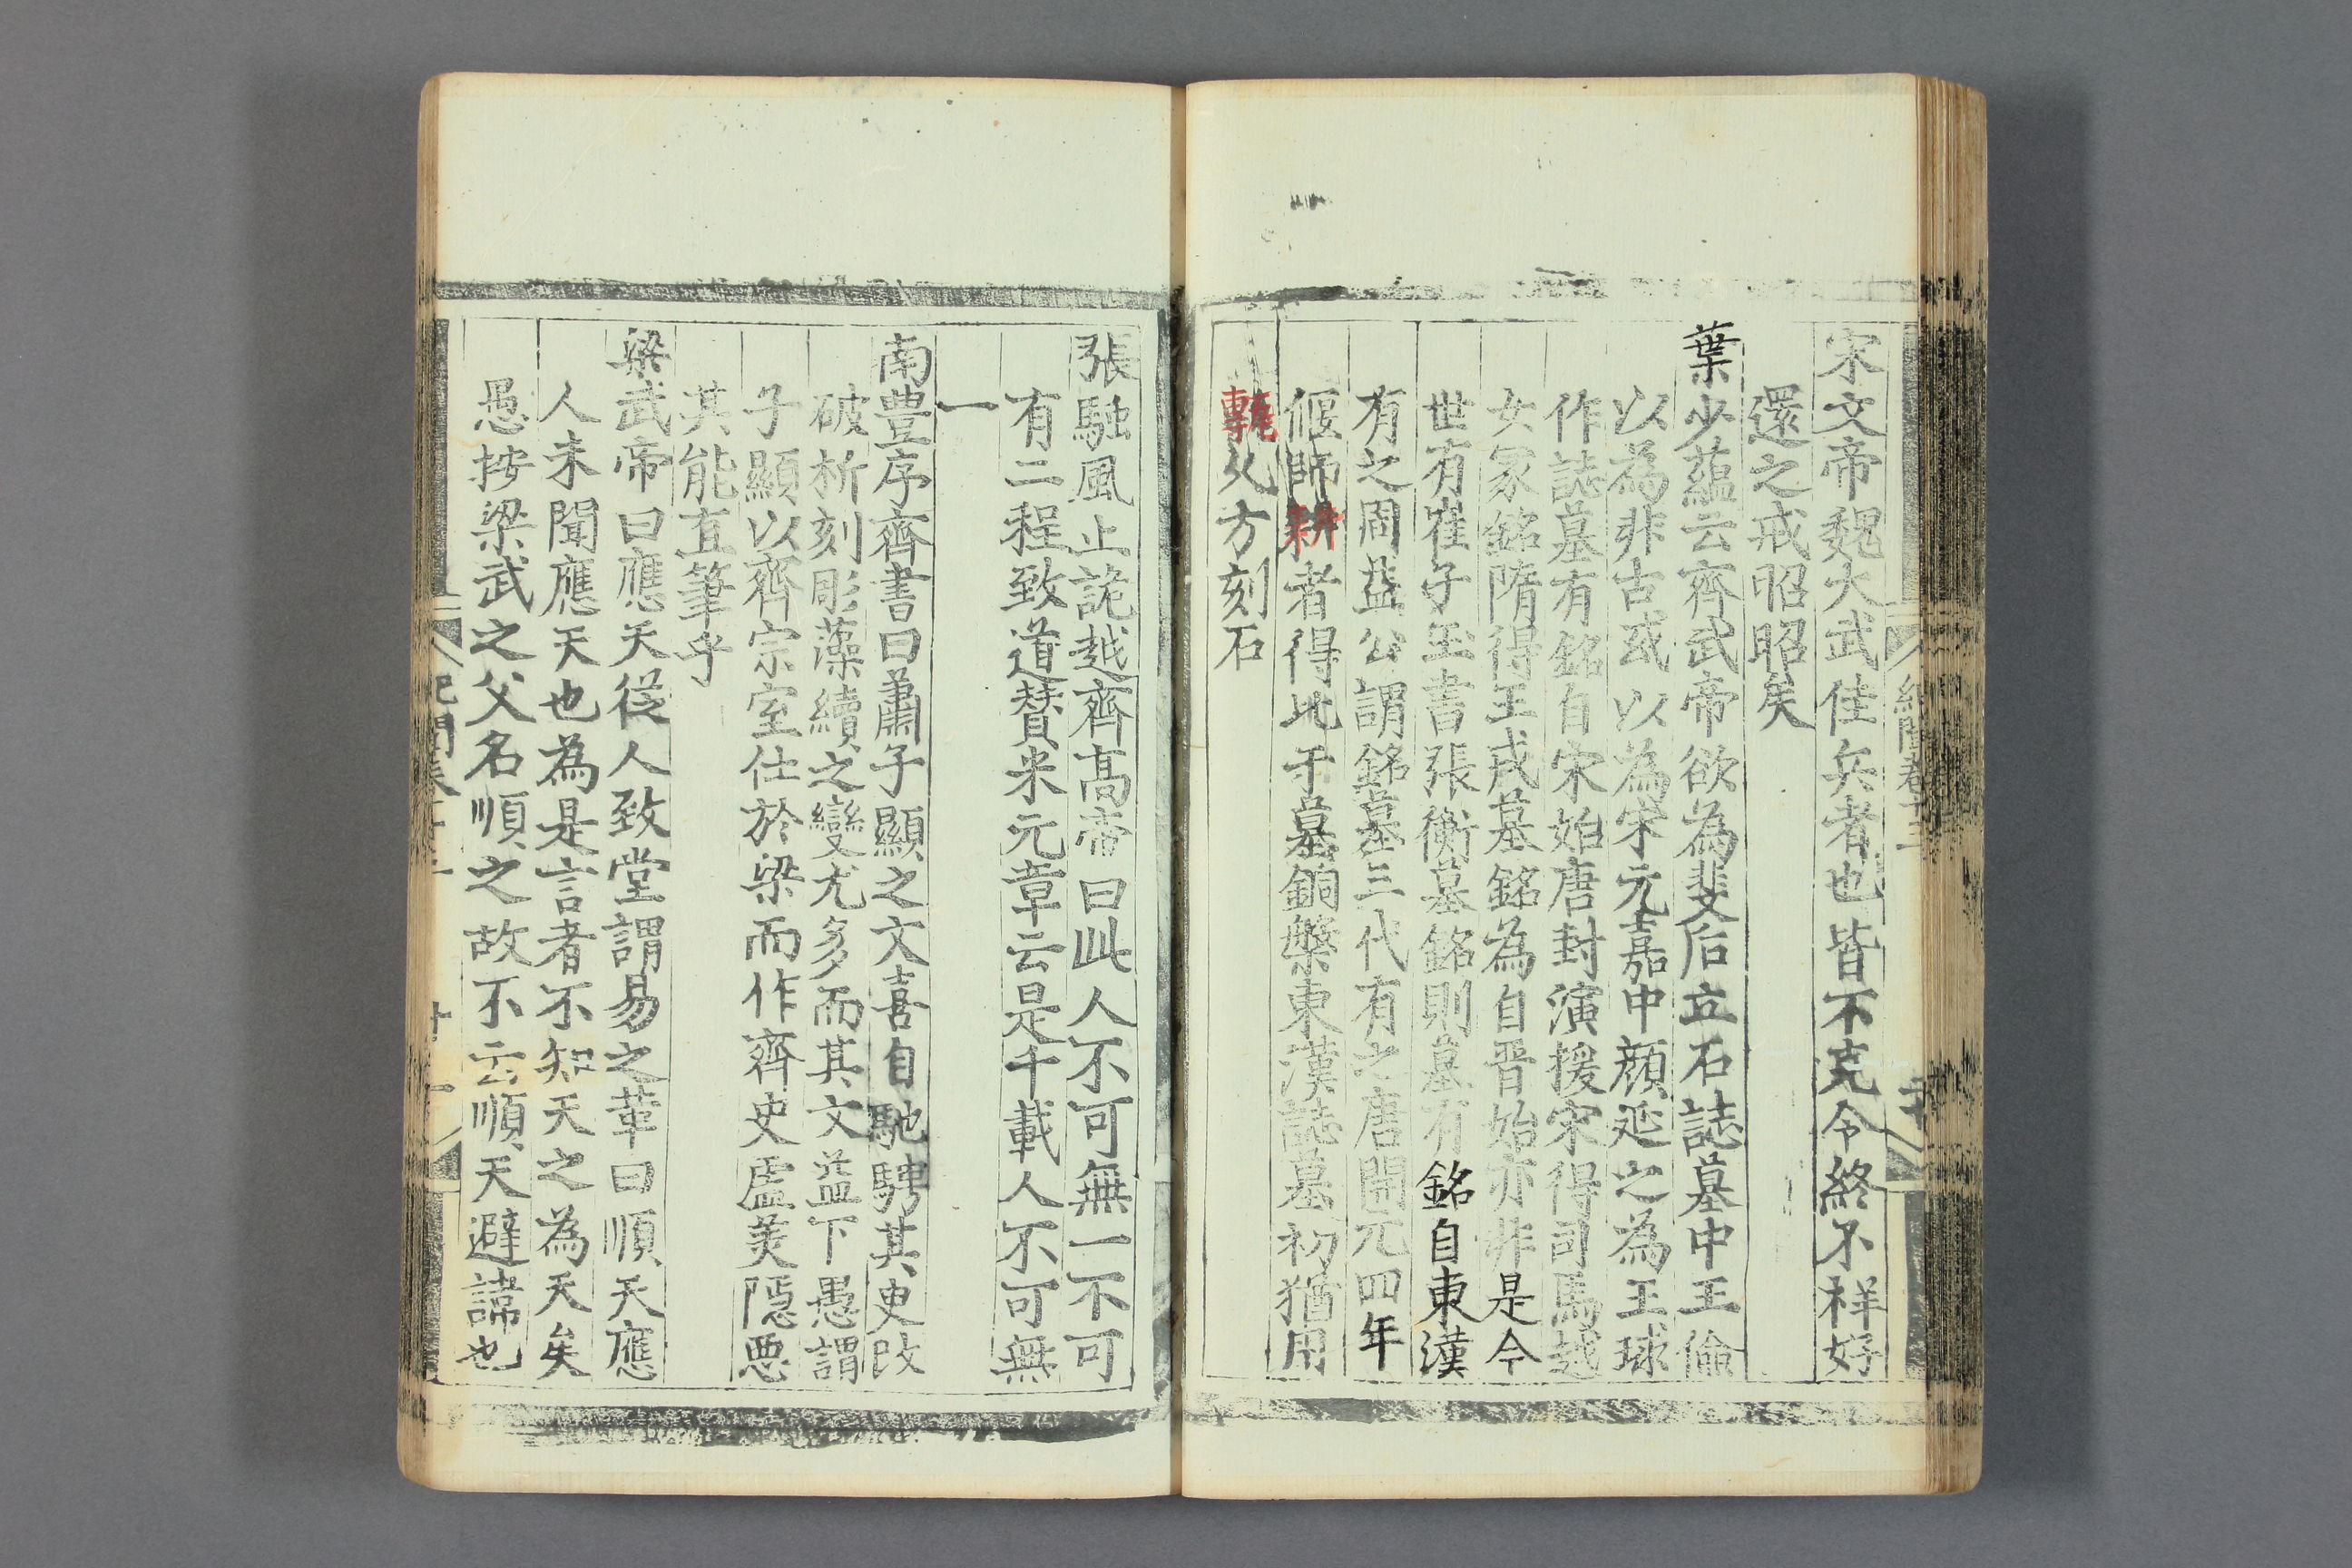 宋文帝魏太武佳兵者也皆不克令終不祥好
還之戒昭昭矣
葉少蘊云齊武帝欲為裴后立石誌墓中王儉
以為非古或以為宋元嘉中顔延之為王球
作誌墓有銘自宋始唐封演援宋得司馬越
女冢銘隋得王戎墓銘為自晋始亦非是今
世有崔子玉書張衡墓銘則墓有銘自東漢
有之周益公謂銘墓三代有之唐開元四年
偃師耕者得比干墓銅槃東漢誌墓初猶用
甎久方刻石
張融風止詭越齊髙帝曰此人不可無一不可
有二程致道贊米元章云是千載人不可無
一
南豊序齊書曰蕭子顯之文喜自馳騁其更改
破析刻彫藻繢之變尤多而其文益下愚謂
子顯以齊宗室仕於梁而作齊史虛美隱惡
其能直筆乎
梁武帝曰應天從人致堂謂易之革曰順天應
人未聞應天也為是言者不知天之為天矣
愚按梁武之父名順之故不云順天避諱也